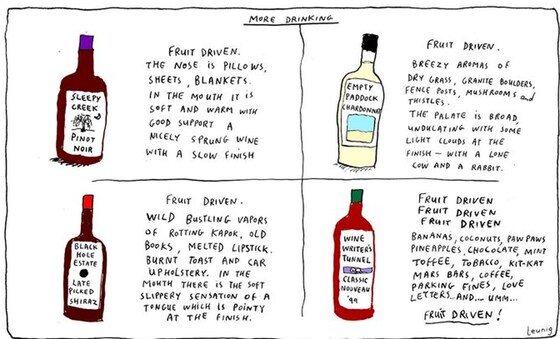 MORE DRINKING
SLEEPY
CREEK
PINOT
NOIR
FRUIT DRIVEN.
THE NOSE IS PILLOWS,
SHEETS, BLANKETS.
IN THE MOUTH IT IS
SOFT AND WARM WITH
GOOD SUPPORT A
NICELY SPRUNG WINE
WITH A SLOW FINISH
EMPTY
PADDOCK
CHARDONNAY
FRUIT DRIVEN.
BREEZY AROMAS OF
DRY GRASS, GRANITE BOULDERS,
FENCE POSTS, MUSHROOMS and
THISTLES.
THE PALATE IS BROAD,
UNDULATING WITH SOME
LIGHT CLOUDS AT THE
FINISH – WITH A LONE
COW AND A RABBIT.
BLACK
HOLE
ESTATE
LATE
PICKED
SHIRAZ
FRUIT DRIVEN.
WILD BUSTLING VAPORS
OF ROTTING KAPOK, OLD
BOOKS, MELTED LIPSTICK.
BURNT TOAST AND CAR
UPHOLSTERY. IN THE
MOUTH THERE IS THE SOFT
SLIPPERY SENSATION OF A
TONGUE WHICH IS POINTY
AT THE FINISH.
WINE
WRITER'S
TUNNEL
CLASSIC
NOUVEAU
'99
FRUIT DRIVEN
FRUIT DRIVEN
FRUIT DRIVEN
BANANAS, COCONUTS, PAW PAWS
PINEAPPLES, CHOCOLATE, MINT
TOFFEE, TOBACCO, KIT-KAT
MARS BARS, COFFEE,
PARKING FINES, LOVE
LETTERS...AND... UMM...
FRUIT DRIVEN!
Leunig